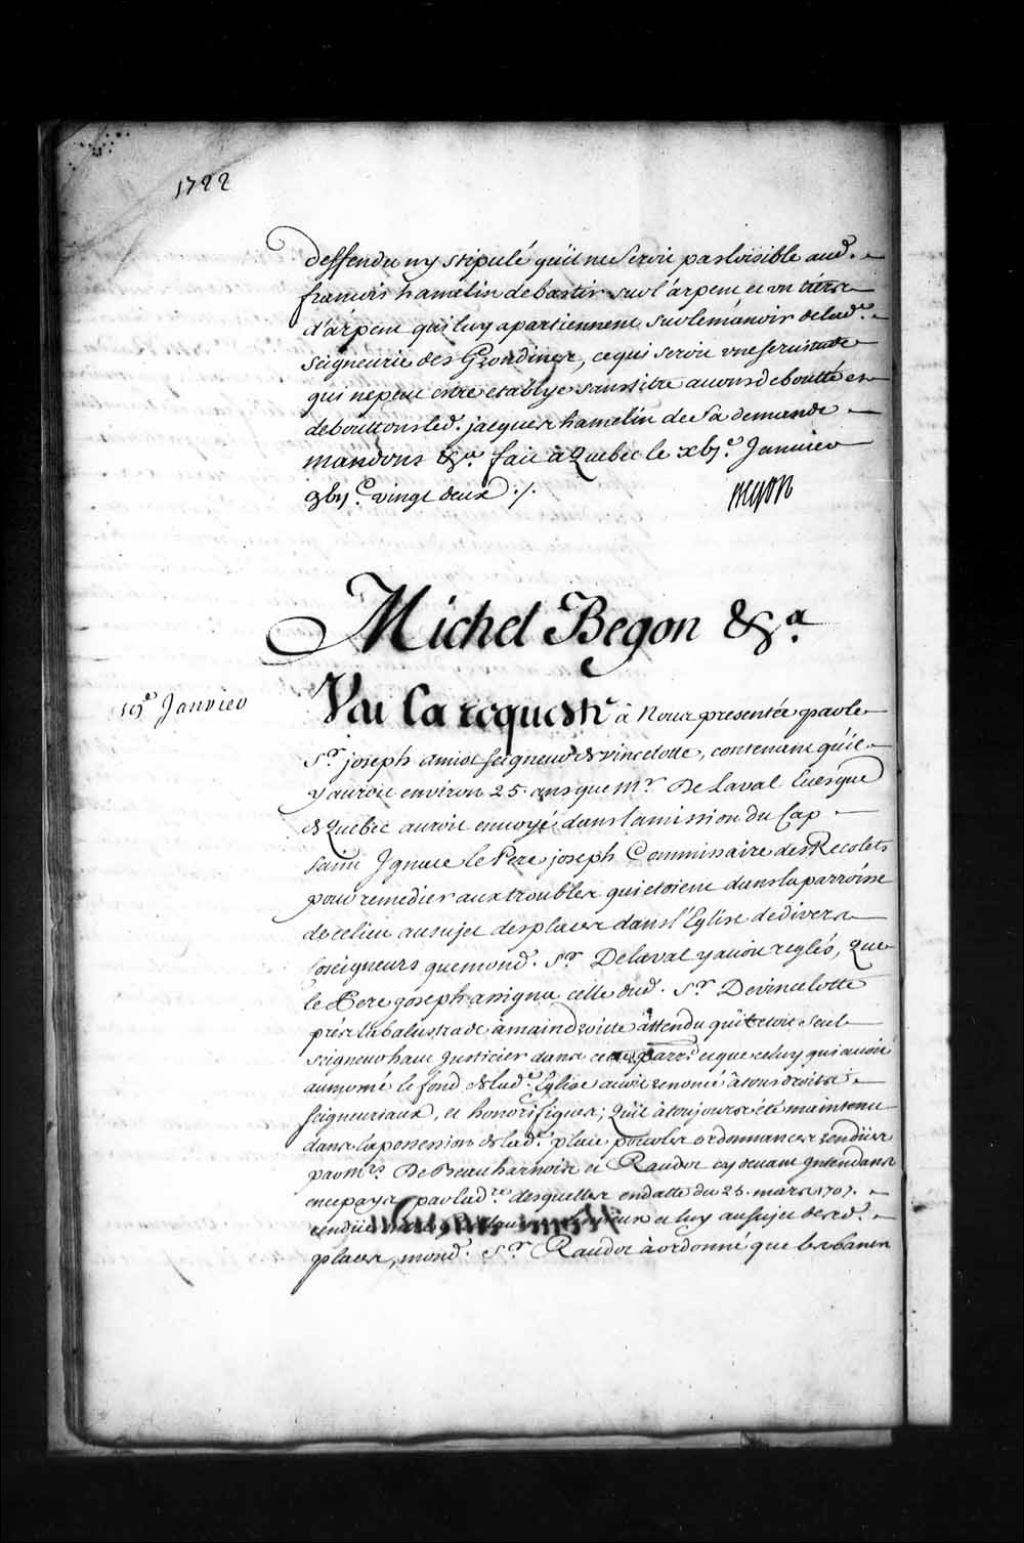 1722
deffendu ny stipulé qu'il ne seroit pas loisible aud.
francois hamelin de bastir sur l'arpent et un tiers
d'arpent qui luy apartiennent sur le manoir de lad.e
seigneurie des Grondines, ce qui seroit une servitude
qui ne peut estre establye sans titre avons deboutté et
debouttons led. jacques hamelin de sa demande
mandons &a. fait a Quebec le xbj.e Janvier
gbij.c vingt deux ./.
Begon
Michel Begon &a.
19e Janvier
Veu la requeste à Nous presentée par le
Sr. joseph amiot seigneur de vincelotte, contenant qu'il
y auroit environ 25. ans que Mr. De Laval Evesque
de Quebec auroit envoyé dans la mission du Cap
saint Ignace le Pere joseph Commissaire des Recolets
pour remedier aux troubles qui etoient dans la parroisse
de ce lieu au sujet des places dans l'Eglise de divers
seigneurs que mond. Sr. De laval y avoit reglés, Que
le Pere joseph assigna celle dud. Sr. De vincelotte
près la balustrade a main droitte attendu qu'il etoit seul
seigneur haut justicier dans cette parr.e et que celuy qui avoit
aumoné le fond de lad.e Eglise avoit renoncé à tous droits
seigneuriaux, et honorifiques; Qu'il a toujours été maintenu
dans la possession de lad.e place par les ordonnances rendües
par Mrs. De Beauharnois et Raudot cy devant Intendans
en ce pays par lad.re desquelles en datte du 25. mars 1707.
rendüe et luy au sujet desd.
places, mond. Sr. Raudot a ordonné que les bancs